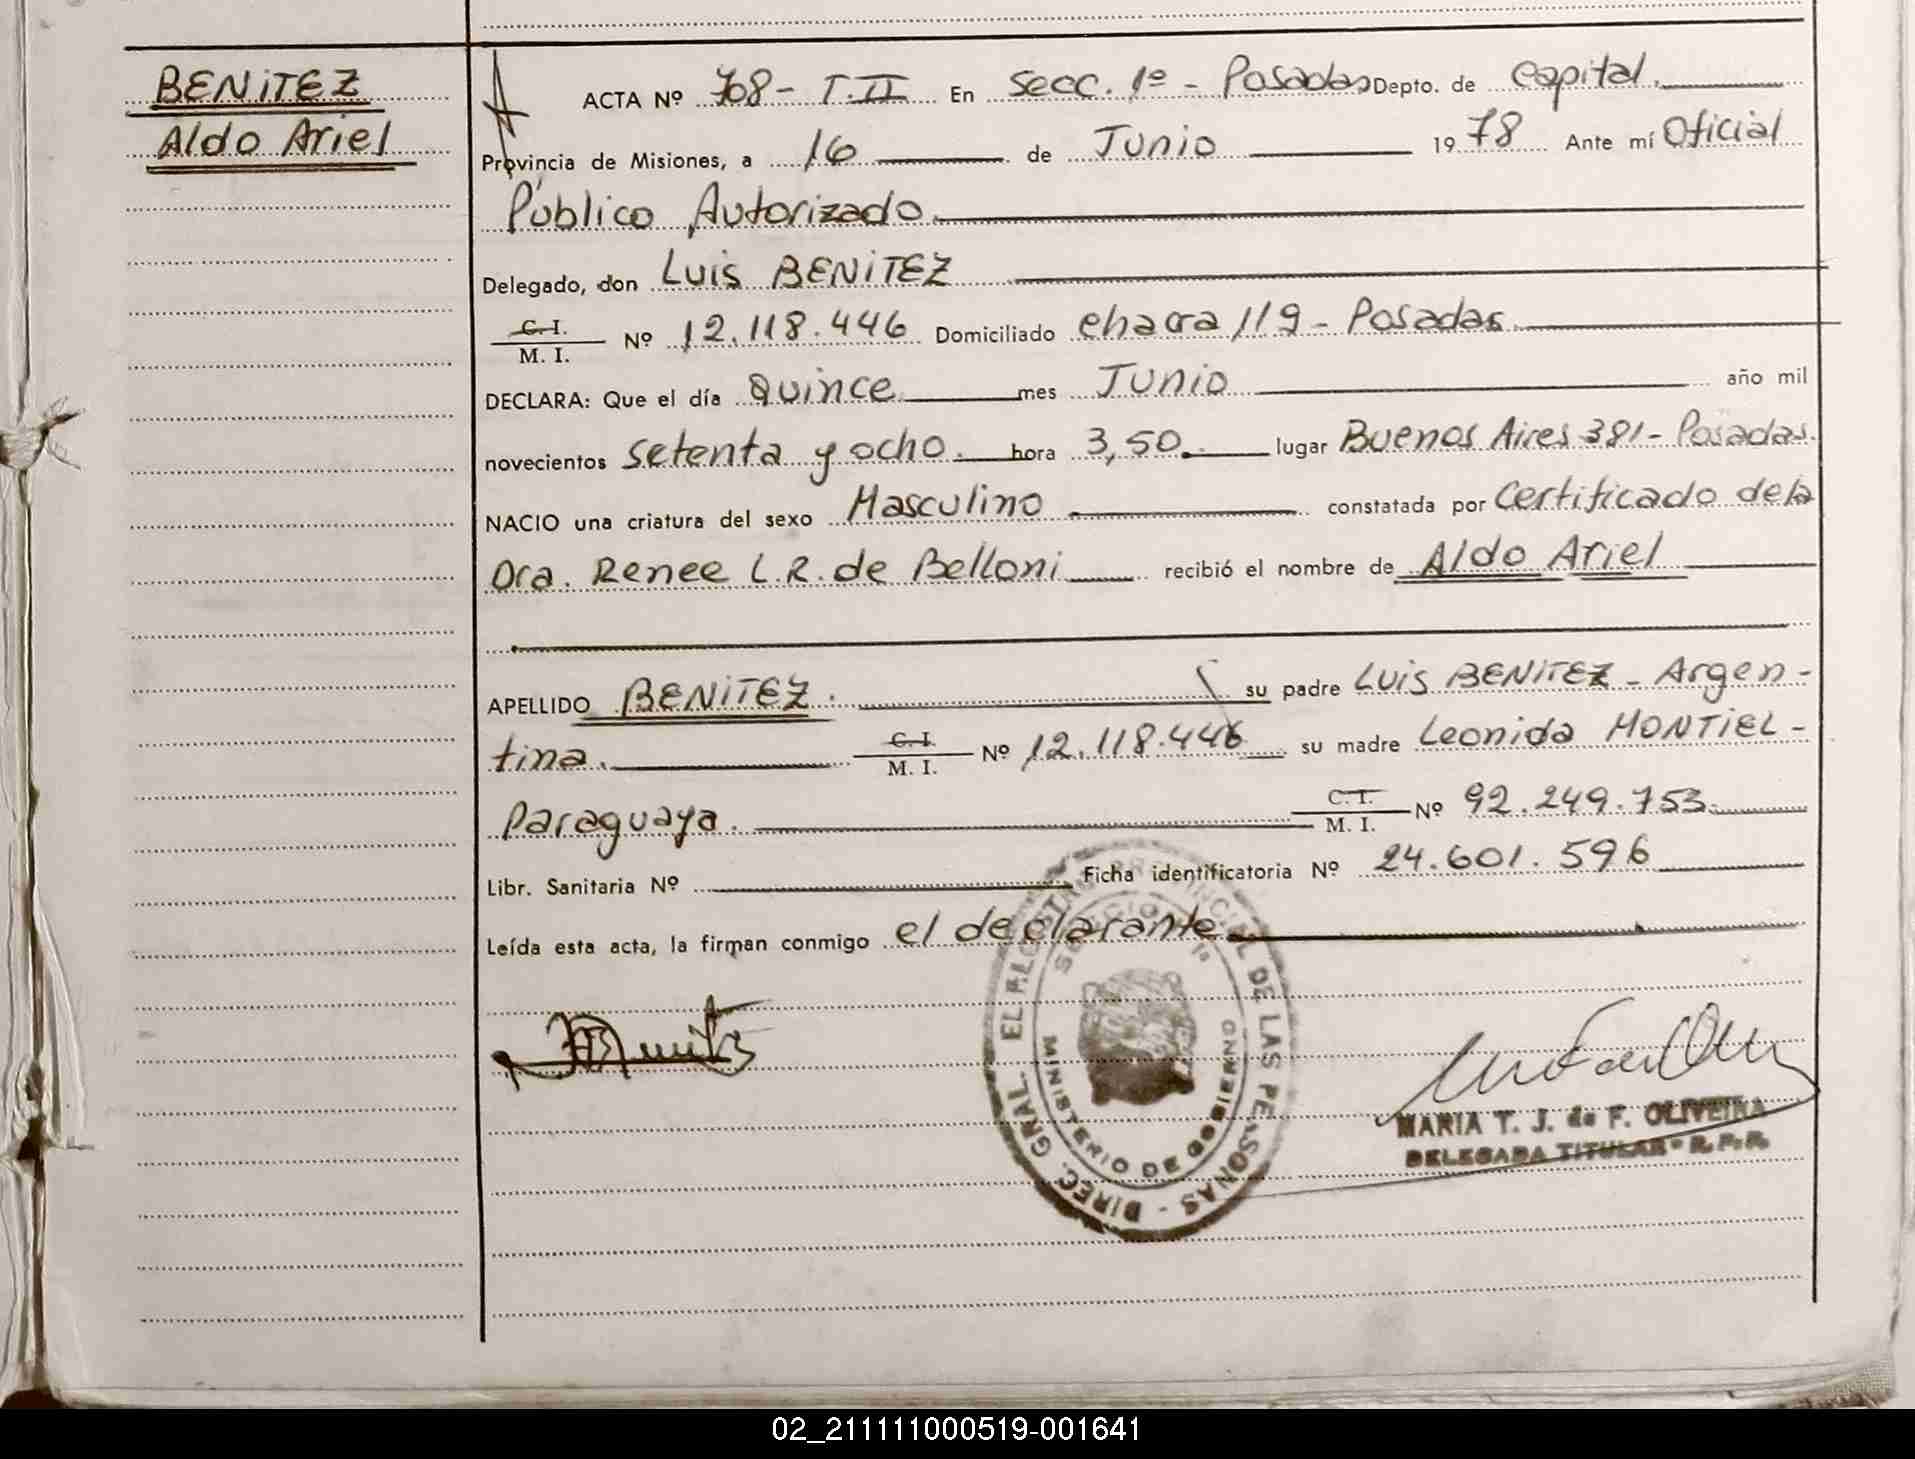 BENITEZ
Aldo Ariel
ACTA Nº 768- T.II En Secc. 1º - Posadas Depto. de Capital.
Provincia de Misiones, a 16 de Junio 1978 Ante mí Oficial
Público Autorizado.
Delegado, don Luis BENITEZ
C. I.
M. I. Nº 12.118.446 Domiciliado chacra 119 - Posadas.
DECLARA: Que el día Quince mes Junio año mil
novecientos setenta y ocho. hora 3,50. lugar Buenos Aires 381 - Posadas.
NACIO una criatura del sexo Masculino constatada por Certificado de la
Dra. Renee L.R. de Belloni recibió el nombre de Aldo Ariel
APELLIDO BENITEZ. su padre Luis BENITEZ - Argen-
tina. C. I. M. I. Nº 12.118.446 su madre Leonida MONTIEL -
Paraguaya. C. I. M. I. Nº 92.249.753.
Libr. Sanitaria Nº Ficha identificatoria Nº 24.601.596
Leída esta acta, la firman conmigo el declarante
DIREC. GRAL. DE LAS PERSONAS
MINISTERIO DE GOBIERNO
MARIA T. J. de F. OLIVEIRA
DELEGADA TITULAR - R. P. P.
02_211111000519-001641